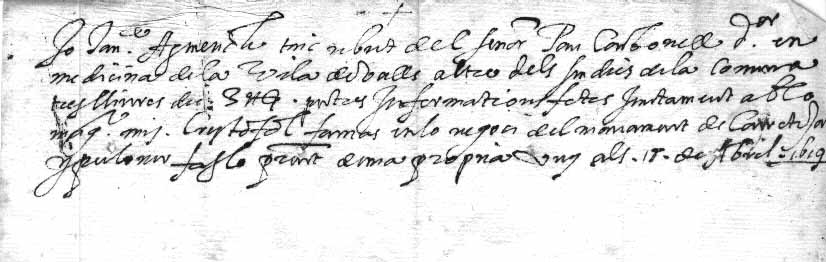 Jo Jau.e Agmerich tinc rebut del señor Pau Carbonell d.or en
medicina de la Vila de Valls altre dels sindics de la Comuna
tres lliures dic 3 ll per tres Informations fetes juntament ab lo
mag.c mº. Cristofol famas en lo negoci del monament de Carreti
y per lo ver fas lo pnt de ma propria vuy als 15 de Abril 1619